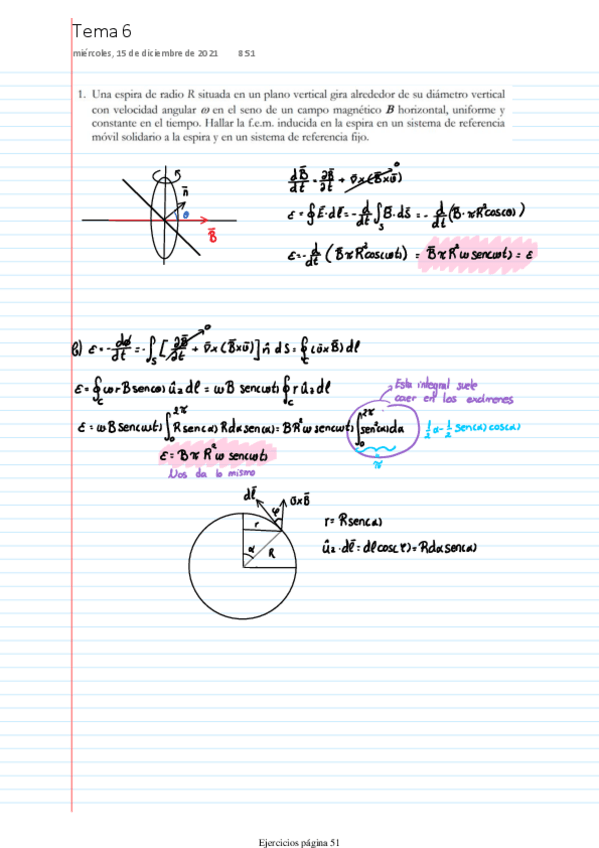 Tema 6
miércoles, 15 de diciembre de 2021 8 51
1. Una espira de radio R situada en un plano vertical gira alrededor de su diámetro vertical
con velocidad angular ω en el seno de un campo magnético B horizontal, uniforme y
constante en el tiempo. Hallar la f.e.m. inducida en la espira en un sistema de referencia
móvil solidario a la espira y en un sistema de referencia fijo.
n̄
θ
B̄
dB̄/dt = ∂B̄/∂t + ∇̄x(B̄xῡ) 0
ε = ∮Ēdl̄ = -d/dt ∫s B̄·ds̄ = -d/dt (B·πR²cos(θ))
ε = -d/dt (B̄πR²cos(ωt)) = B̄πR²ω sen(ωt) = ε
b) ε = -dφ/dt = -∫s [∂B̄/∂t + ∇̄x(B̄xῡ)] n̂ ds = ∮c (ῡxB̄)dl 0
ε = ∮c ωrBsen(α) û₂dl = ωB sen(ωt) ∮c r û₂dl
Esta integral suele
caer en los exámenes
ε = ωB sen(ωt) ∫₀^2π Rsen(α) Rdα sen(α) = BR²ω sen(ωt) ∫₀^2π sen²(α)dα ½α - ½ sen(α) cos(α)
π
ε = BπR²ω sen(ωt)
Nos da lo mismo
dl̄ ῡxB̄
φ
r
α R
r = Rsen(α)
û₂·dl̄ = dlcos(φ) = Rdαsen(α)
Ejercicios página 51